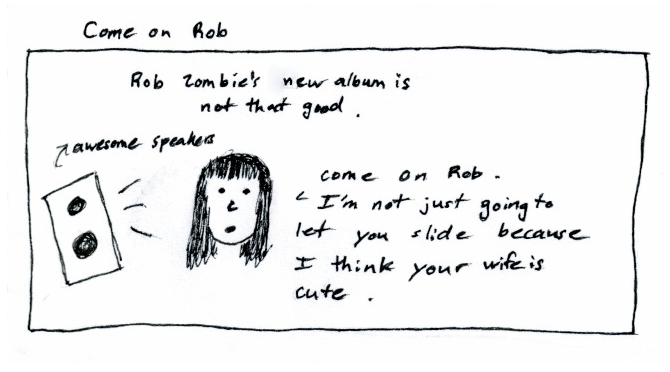 Come on Rob
Rob Zombie's new album is
not that good.
awesome speakers
come on Rob.
I'm not just going to
let you slide because
I think your wife is
cute.